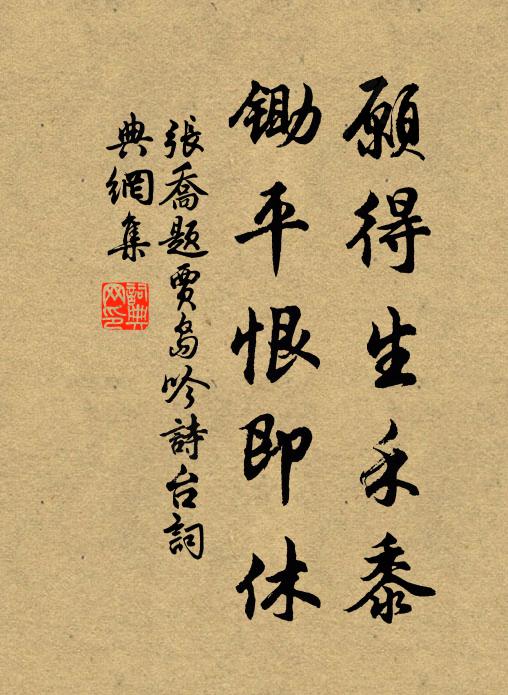 願得生禾黍
鋤平恨即休
張喬題賈島吟詩台詞
典網集
詞典
网印